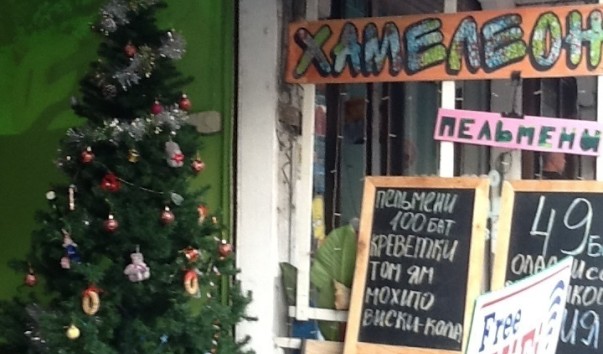 ХАМЕЛЕОН
ПЕЛЬМЕНЫ
ПЕЛЬМЕНИ
100 БАТ
КРЕВЕТКИ
ТОМ ЯМ
МОХИТО
ВИСКИ-КОЛА
49
Free